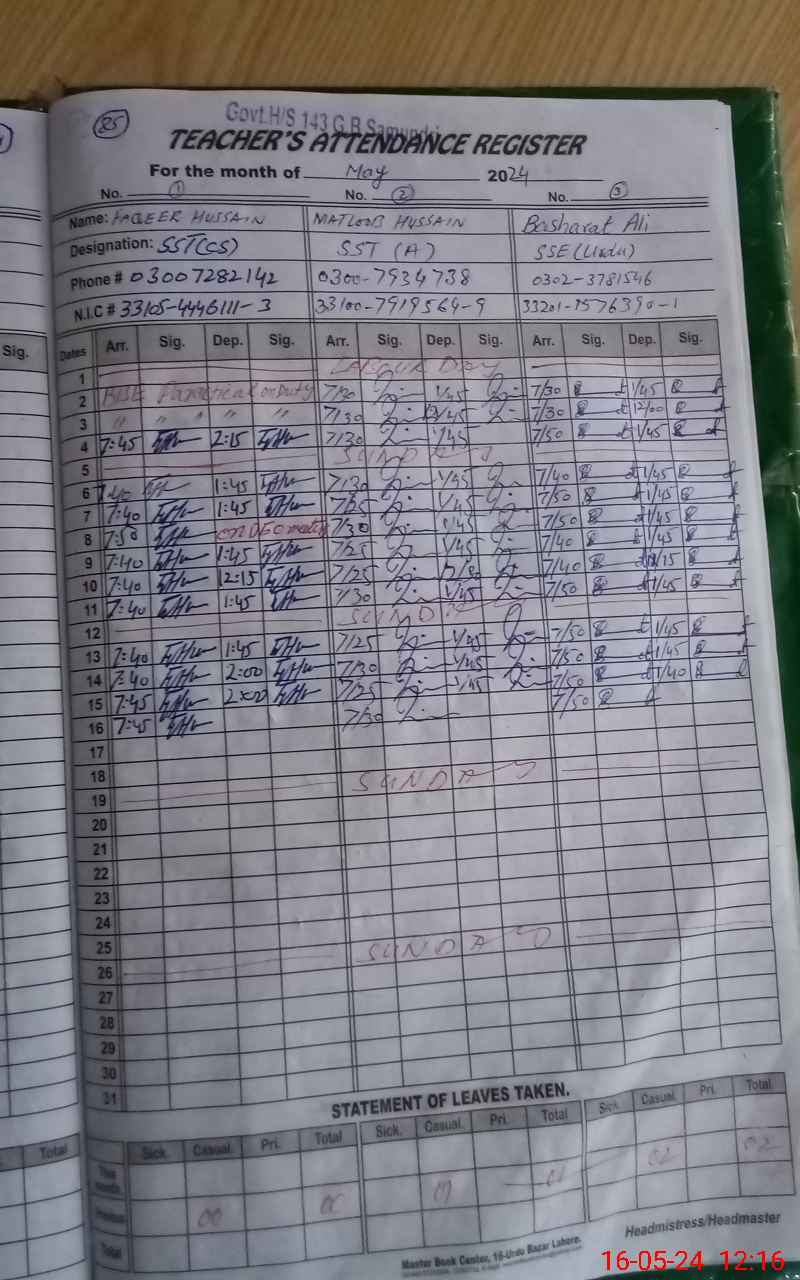 85
Govt.H/S 143 G.B Samundri
TEACHER'S ATTENDANCE REGISTER
For the month of May 2024
No. 1 No. 2 No. 3
Name: FAQEER HUSSAIN MATLOOB HUSSAIN Basharat Ali
Designation: SST(CS) SST (A) SSE(Urdu)
Phone # 03007282142 0300-7934738 0302-3781546
N.I.C # 33105-4446111-3 33100-7919564-9 33201-1576390-1
Sig. Dates Arr. Sig. Dep. Sig. Arr. Sig. Dep. Sig. Arr. Sig. Dep. Sig.
1 LABOUR DAY
2 BISE Practical on Duty 7/30 1/45 7/30 1/45
3 " " " " " 7/30 7/30 12/00
4 7:45 2:15 7/30 1/45 7/50 1/45
5 SUNDAY
6 7:40 1:45 7/30 1/45 7/40 1/45
7 7:40 1:45 7/25 1/45 7/50 1/45
8 7:50 on DEO meeting 7/30 1/45 7/50 1/45
9 7:40 1:45 7/25 1/45 7/40 1/45
10 7:40 12:15 7/25 7/40
11 7:40 1:45 7/30 1/45 7/50 1/45
12 SUNDAY
13 7:40 1:45 7/25 1/45 7/50 1/45
14 7:40 2:00 7/30 1/45 7/50 1/45
15 7:45 2:00 7/25 1/45 7/50 1/40
16 7:45 7/30 7/50
17
18
19 SUNDAY
20
21
22
23
24
25
26 SUNDAY
27
28
29
30
31
STATEMENT OF LEAVES TAKEN.
Total Sick. Casual. Pri. Total Sick. Casual. Pri. Total Sick. Casual. Pri. Total
This month.
Previous 00 00 01 01 02 02
Total
Headmistress/Headmaster
Master Book Center, 16-Urdu Bazar Lahore.
16-05-24 12:16